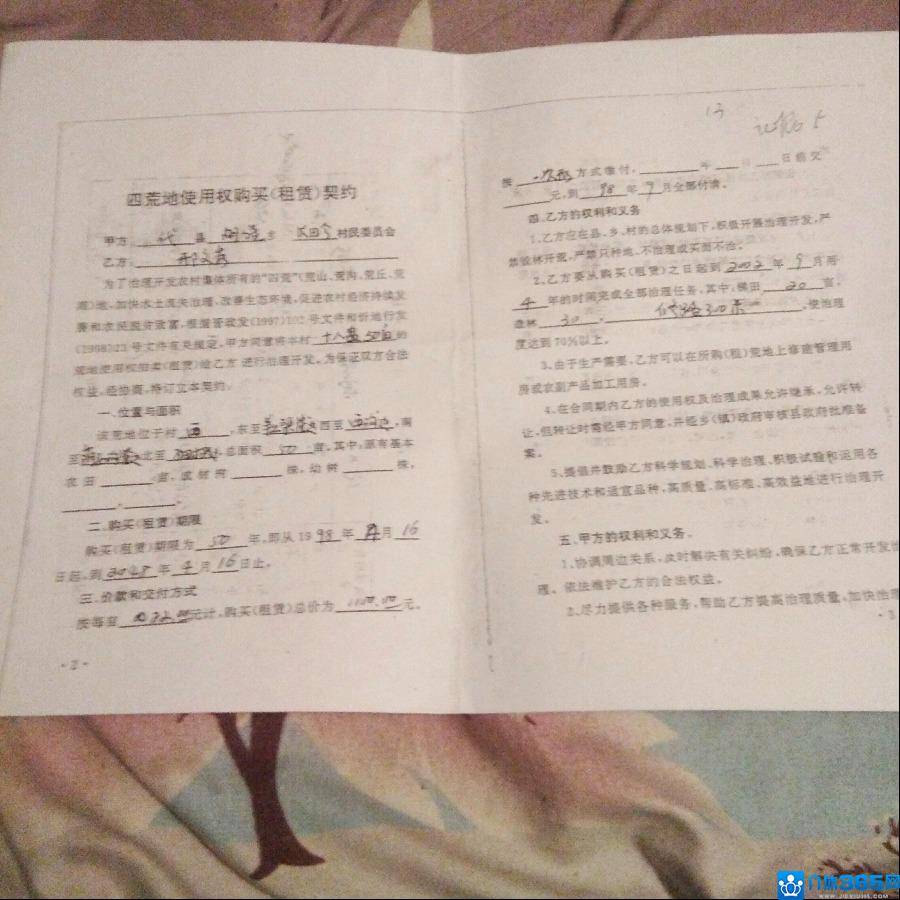 四荒地使用权购买(租赁)契约
甲方: 代 县 乡 村民委员会
乙方:
为了治理开发农村集体所有的“四荒”(荒山、荒沟、荒丘、荒
滩)地,加快水土流失治理,改善生态环境,促进农村经济持续发
展和农民脱贫致富,根据晋政发(1997)102号文件和忻地行发
(1998)23号文件有关规定,甲方同意将本村 50亩的
荒地使用权拍卖(租赁)给乙方进行治理开发。为保证双方合法
权益,经协商,特订立本契约。
一、位置与面积
该荒地位于村 西 ,东至 西至 ,南
至 北至 ,总面积 50 亩,其中,原有基本
农田 亩,成材树 株,幼树 株,
二、购买(租赁)期限
购买(租赁)期限为 50 年,即从1998年4月16
日起,到2048年4月16日止。
三、价款和交付方式
按每亩 元计,购买(租赁)总价为 元。
·2·
证据5
按 一次性 方式缴付, 年 月 日前交
元,到 98 年 9 月全部付清。
四、乙方的权利和义务
1、乙方应在县、乡、村的总体规划下,积极开展治理开发,严
禁毁林开荒,严禁只种地、不治理或买而不治。
2、乙方要从购买(租赁)之日起到2002年9月用
4 年的时间完成全部治理任务,其中:梯田 20 亩,
造林 30 , 300 ,使治理
度达到70%以上。
3、由于生产需要,乙方可以在所购(租)荒地上修建管理用
房或农副产品加工用房。
4、在合同期内乙方的使用权及治理成果允许继承,允许转
让,但转让时需经甲方同意,并经乡(镇)政府审核县政府批准备
案。
5、提倡并鼓励乙方科学规划、科学治理、积极试验和运用各
种先进技术和适宜品种,高质量、高标准、高效益地进行治理开
发。
五、甲方的权利和义务。
1、协调周边关系,及时解决有关纠纷,确保乙方正常开发治
理。依法维护乙方的合法权益。
2、尽力提供各种服务,帮助乙方提高治理质量,加快治理
·3
八休365网